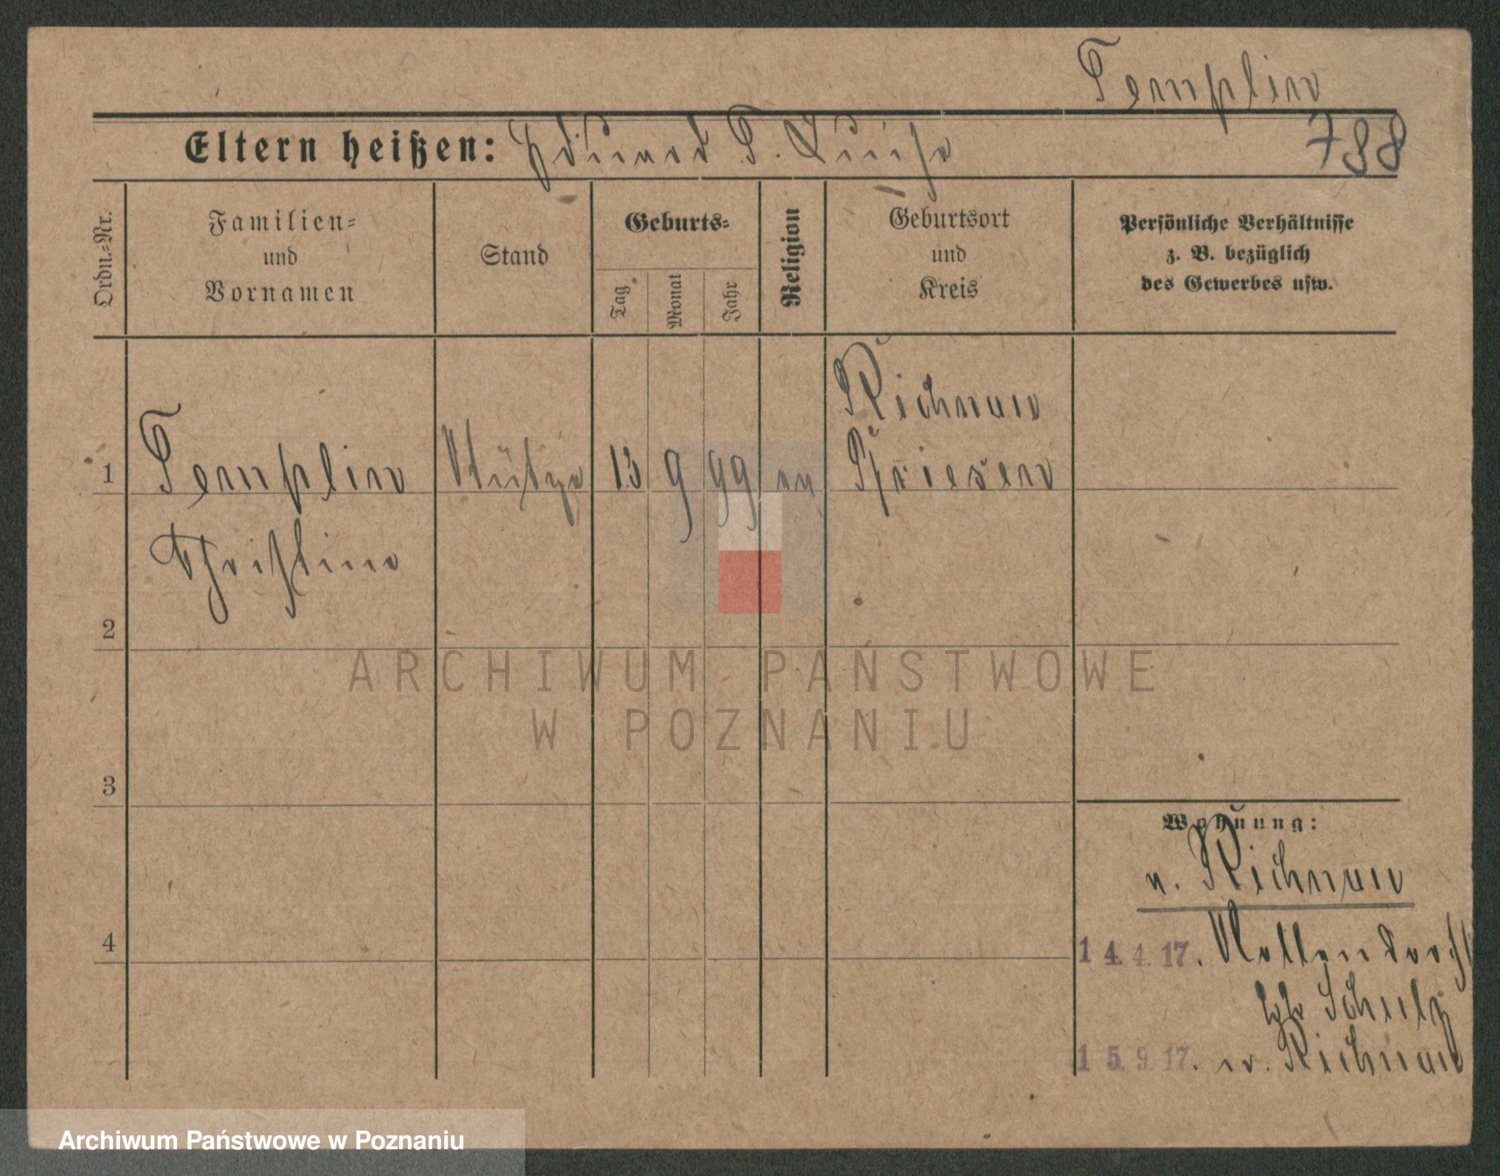 Templin
Eltern heißen: Eduard T. Luise 788
Ordn.-Nr.
Familien-
und
Vornamen
Stand
Geburts-
Tag
Monat
Jahr
Religion
Geburtsort
und
Kreis
Persönliche Verhältnisse
z. B. bezüglich
des Gewerbes usw.
Richnau
1 Templin Stütze 13 9 99 ev Briesen
Christine
2
3
4
Wohnung:
n. Richnau
14.4.17.
Schulz
15.9.17. n. Richnau
ARCHIWUM PAŃSTWOWE
W POZNANIU
Archiwum Państwowe w Poznaniu